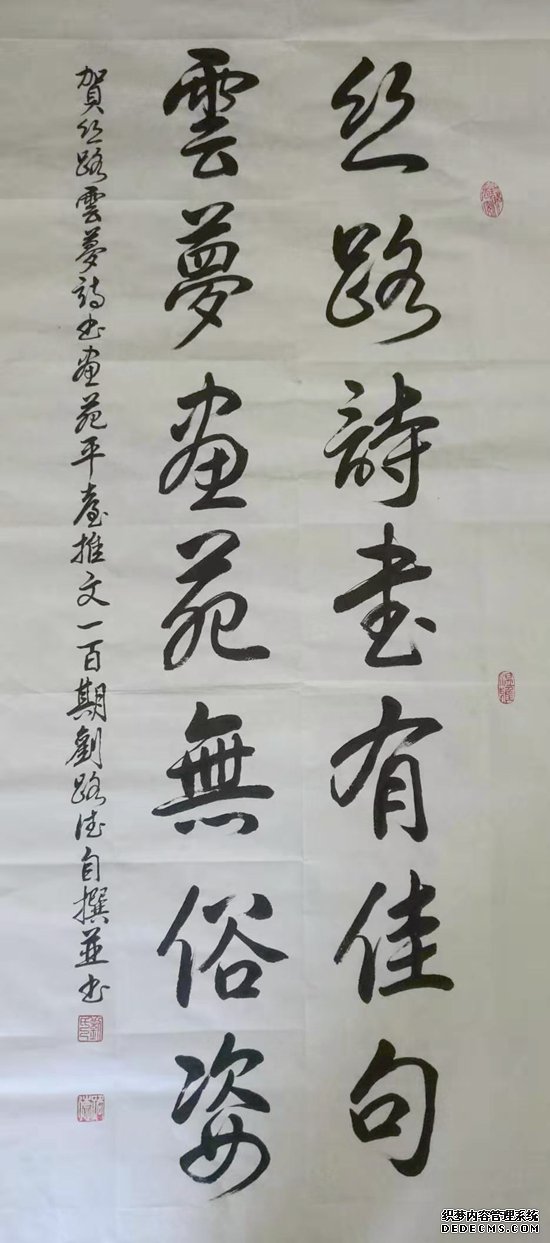 丝路詩书有佳句
雲夢画苑無俗姿
賀丝路雲夢詩书画苑平臺推文一百期劉路德自撰並书
织梦内容管理系统
DEDECMS.COM